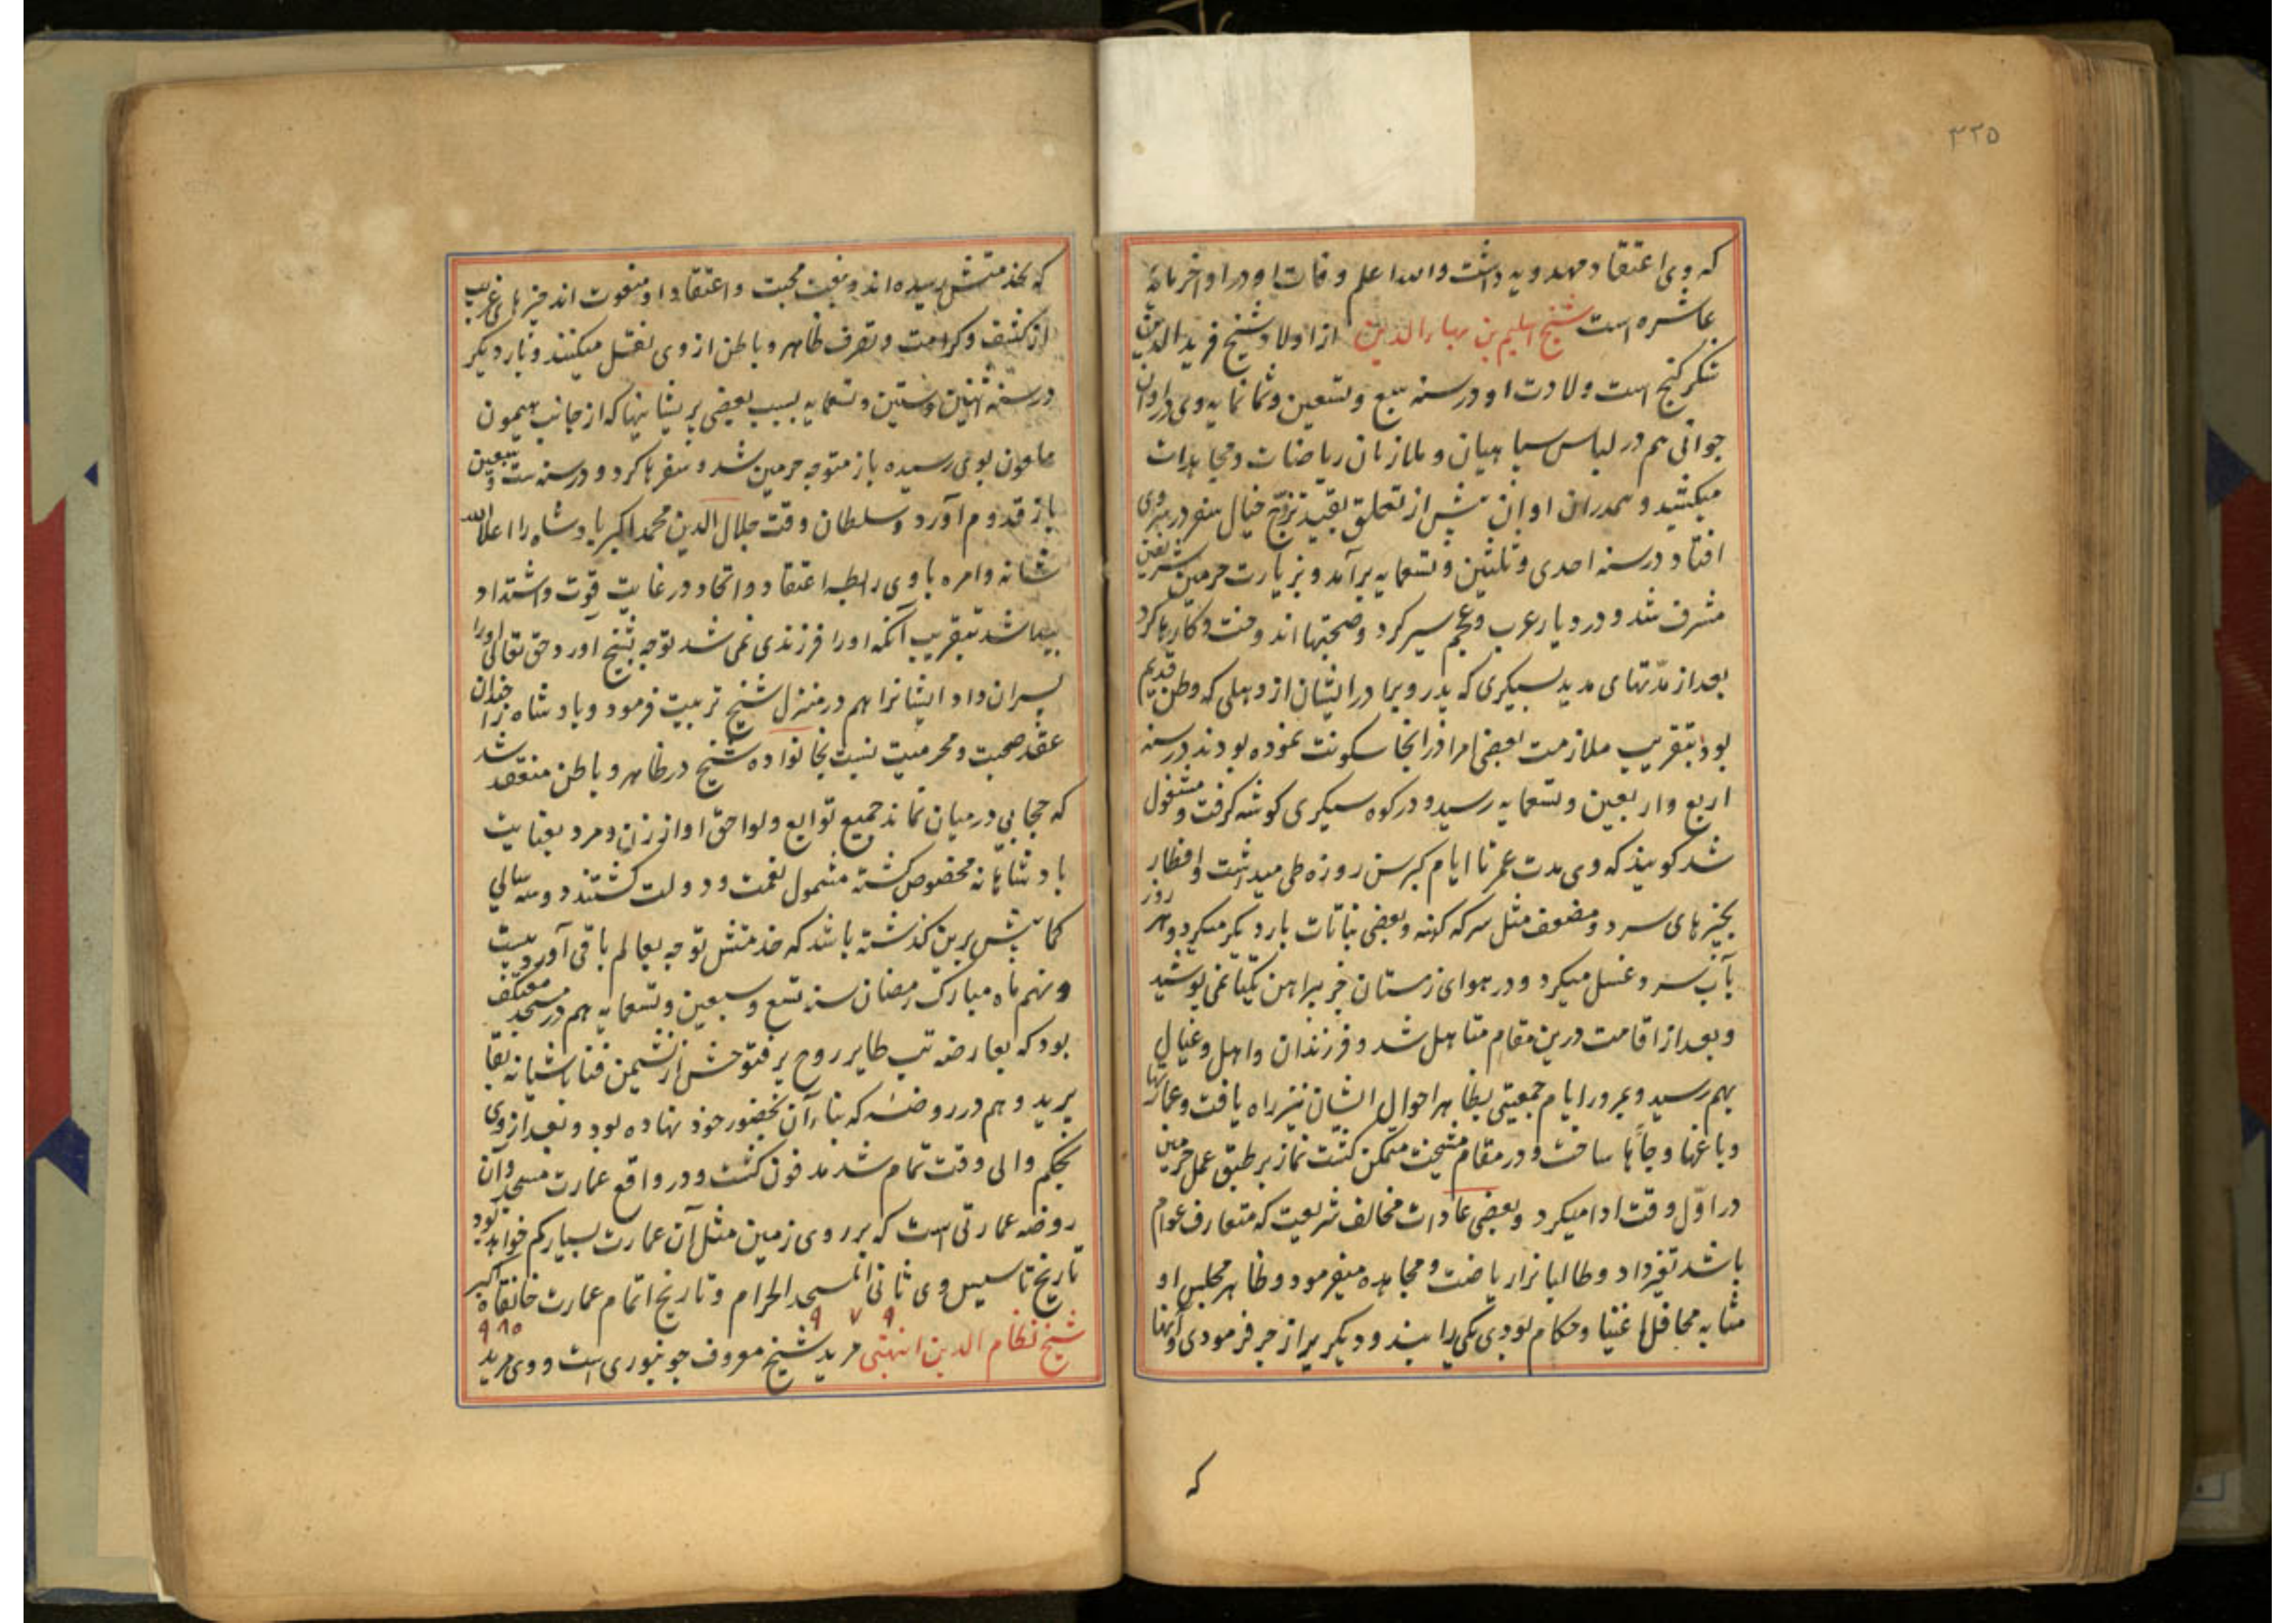 ۳۲۵
که وی اعتقاد مهدویه داشت والله اعلم وفات او در اواخر مائه
عاشره است شیخ سلیم بن بهاءالدین از اولاد شیخ فرید الدین
شکر کنج است ولادت او در سنه سبع و تسعین و ثمانمایه وی در اوان
جوانی هم در لباس سپاهیان و ملازمان ریاضات و مجاهدات
میکشید و همدران اوان پیش از تعلق بقید تزوج خیال سفر در سر وی
افتاد در سنه احدی و ثلثین و تسعمایه برآمد و بزیارت حرمین شریفین
مشرف شد و در دیار عرب و عجم سیر کرد و صحبتها اندوخت و کارها کرد
بعد از مدّتهای مدید بسیکری که پدر و برادر ایشان از دهلی که وطن قدیم
بود بتقریب ملازمت بعضی امرا درانجا سکونت نموده بودند در سنه
اربع و اربعین و تسعمایه رسید و در کوه سیکری کوشه کرفت و مشغول
شد کویند که وی مدت عمر تا ایام کبر سن روزه طی میداشت و افطار
بچیزهای سرد و مضعف مثل سرکه کهنه و بعضی نباتات بارد یکر میکرد و هر روز
بآب سرد غسل میکرد و در هوای زمستان جز پیراهن یکتا نمی پوشید
و بعد از اقامت درین مقام متاهل شد و فرزندان و اهل و عیال
بهم رسید و بمرور ایام جمعیتی بظاهر احوال ایشان نیز راه یافت و عمارتها
و باغها و چاها ساخت و در مقام مشیخت متمکن کشت نماز بر طبق عمل حرمین
در اوّل وقت ادا میکرد و بعضی عادات مخالف شریعت که متعارف عوام
باشد تغیر داد و طالبانرا ریاضت و مجاهده میفرمود و ظاهر مجلس او
مشابه محافل اغنیا و حکام بودی یکی را بند و دیکر یرا زجر فرمودی و آنها
که
که بخدمتش رسیده اند و بنعت محبت و اعتقاد او منعوت اند چیزهای غریب
از کشف و کرامت و تصرف ظاهر و باطن از وی نقل میکنند و بار دیکر
در سنه اثنین و ستین و تسعمایه بسبب بعضی پریشانیها که از جانب هیمون
ماعون بوی رسیده باز متوجه حرمین شد و سفرها کرد و در سنه ست و سبعین
باز قدوم آورد و سلطان وقت جلال الدین محمد اکبر بادشاه را اعلا الله
شانه و امره با وی رابطه اعتقاد و اتحاد در غایت قوّت و اشتداد
پیدا شد بتقریب آنکه او را فرزندی نمی شد توجه بشیخ آورد حق تعالی او را
پسران داد ایشانرا هم در منزل شیخ تربیت فرمود و بادشاه را چندان
عقد صحبت و محرمیت نسبت بخانواده شیخ در ظاهر و باطن منعقد شد
که حجابی درمیان نماند جمیع توابع و لواحق او از زن و مرد بعنایت
بادشاهانه مخصوص کشته مشمول نعمت و دولت کشتند دو سه سالی
کما بیش برین کذشته باشد که خدمتش توجه بعالم باقی آورد بیست
و نهم ماه مبارک رمضان سنه تسع و سبعین و تسعمایه هم در مسجد معتکف
بود که بعارضه تب طایر روح پر فتوحش از نشیمن فنا باشیانه بقا
پرید و هم در روضه که بناء آن بحضور خود نهاده بود و بعد از وی
بحکم والی وقت تمام شد مدفون کشت و در واقع عمارت مسجد و آن
روضه عمارتی است که بر روی زمین مثل آن عمارت بسیار کم خواهد بود
تاریخ تاسیس وی ثانی المسجد الحرام و تاریخ اتمام عمارت خانقاه اکبر
۹ ۷ ۹ ۹۸۵
شیخ نظام الدین انبتی مرید شیخ معروف جونپوری است و وی مرید